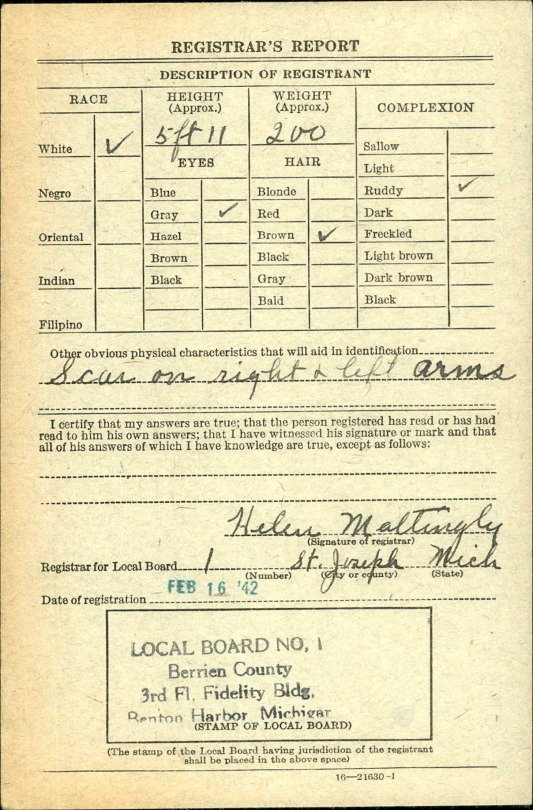 REGISTRAR'S REPORT
DESCRIPTION OF REGISTRANT
RACE
HEIGHT
(Approx.)
WEIGHT
(Approx.)
COMPLEXION
5 ft 11
200
White ✓
EYES
HAIR
Sallow
Light
Negro
Blue
Blonde
Ruddy ✓
Gray ✓
Red
Dark
Oriental
Hazel
Brown ✓
Freckled
Brown
Black
Light brown
Indian
Black
Gray
Dark brown
Bald
Black
Filipino
Other obvious physical characteristics that will aid in identification
Scar on right & left arms
I certify that my answers are true; that the person registered has read or has had
read to him his own answers; that I have witnessed his signature or mark and that
all of his answers of which I have knowledge are true, except as follows:
Helen Mattingly
(Signature of registrar)
Registrar for Local Board 1 St. Joseph Mich
(Number) (City or county) (State)
Date of registration FEB 16 '42
LOCAL BOARD NO. 1
Berrien County
3rd Fl. Fidelity Bldg.
Benton Harbor Michigan
(STAMP OF LOCAL BOARD)
(The stamp of the Local Board having jurisdiction of the registrant
shall be placed in the above space)
16—21630-1